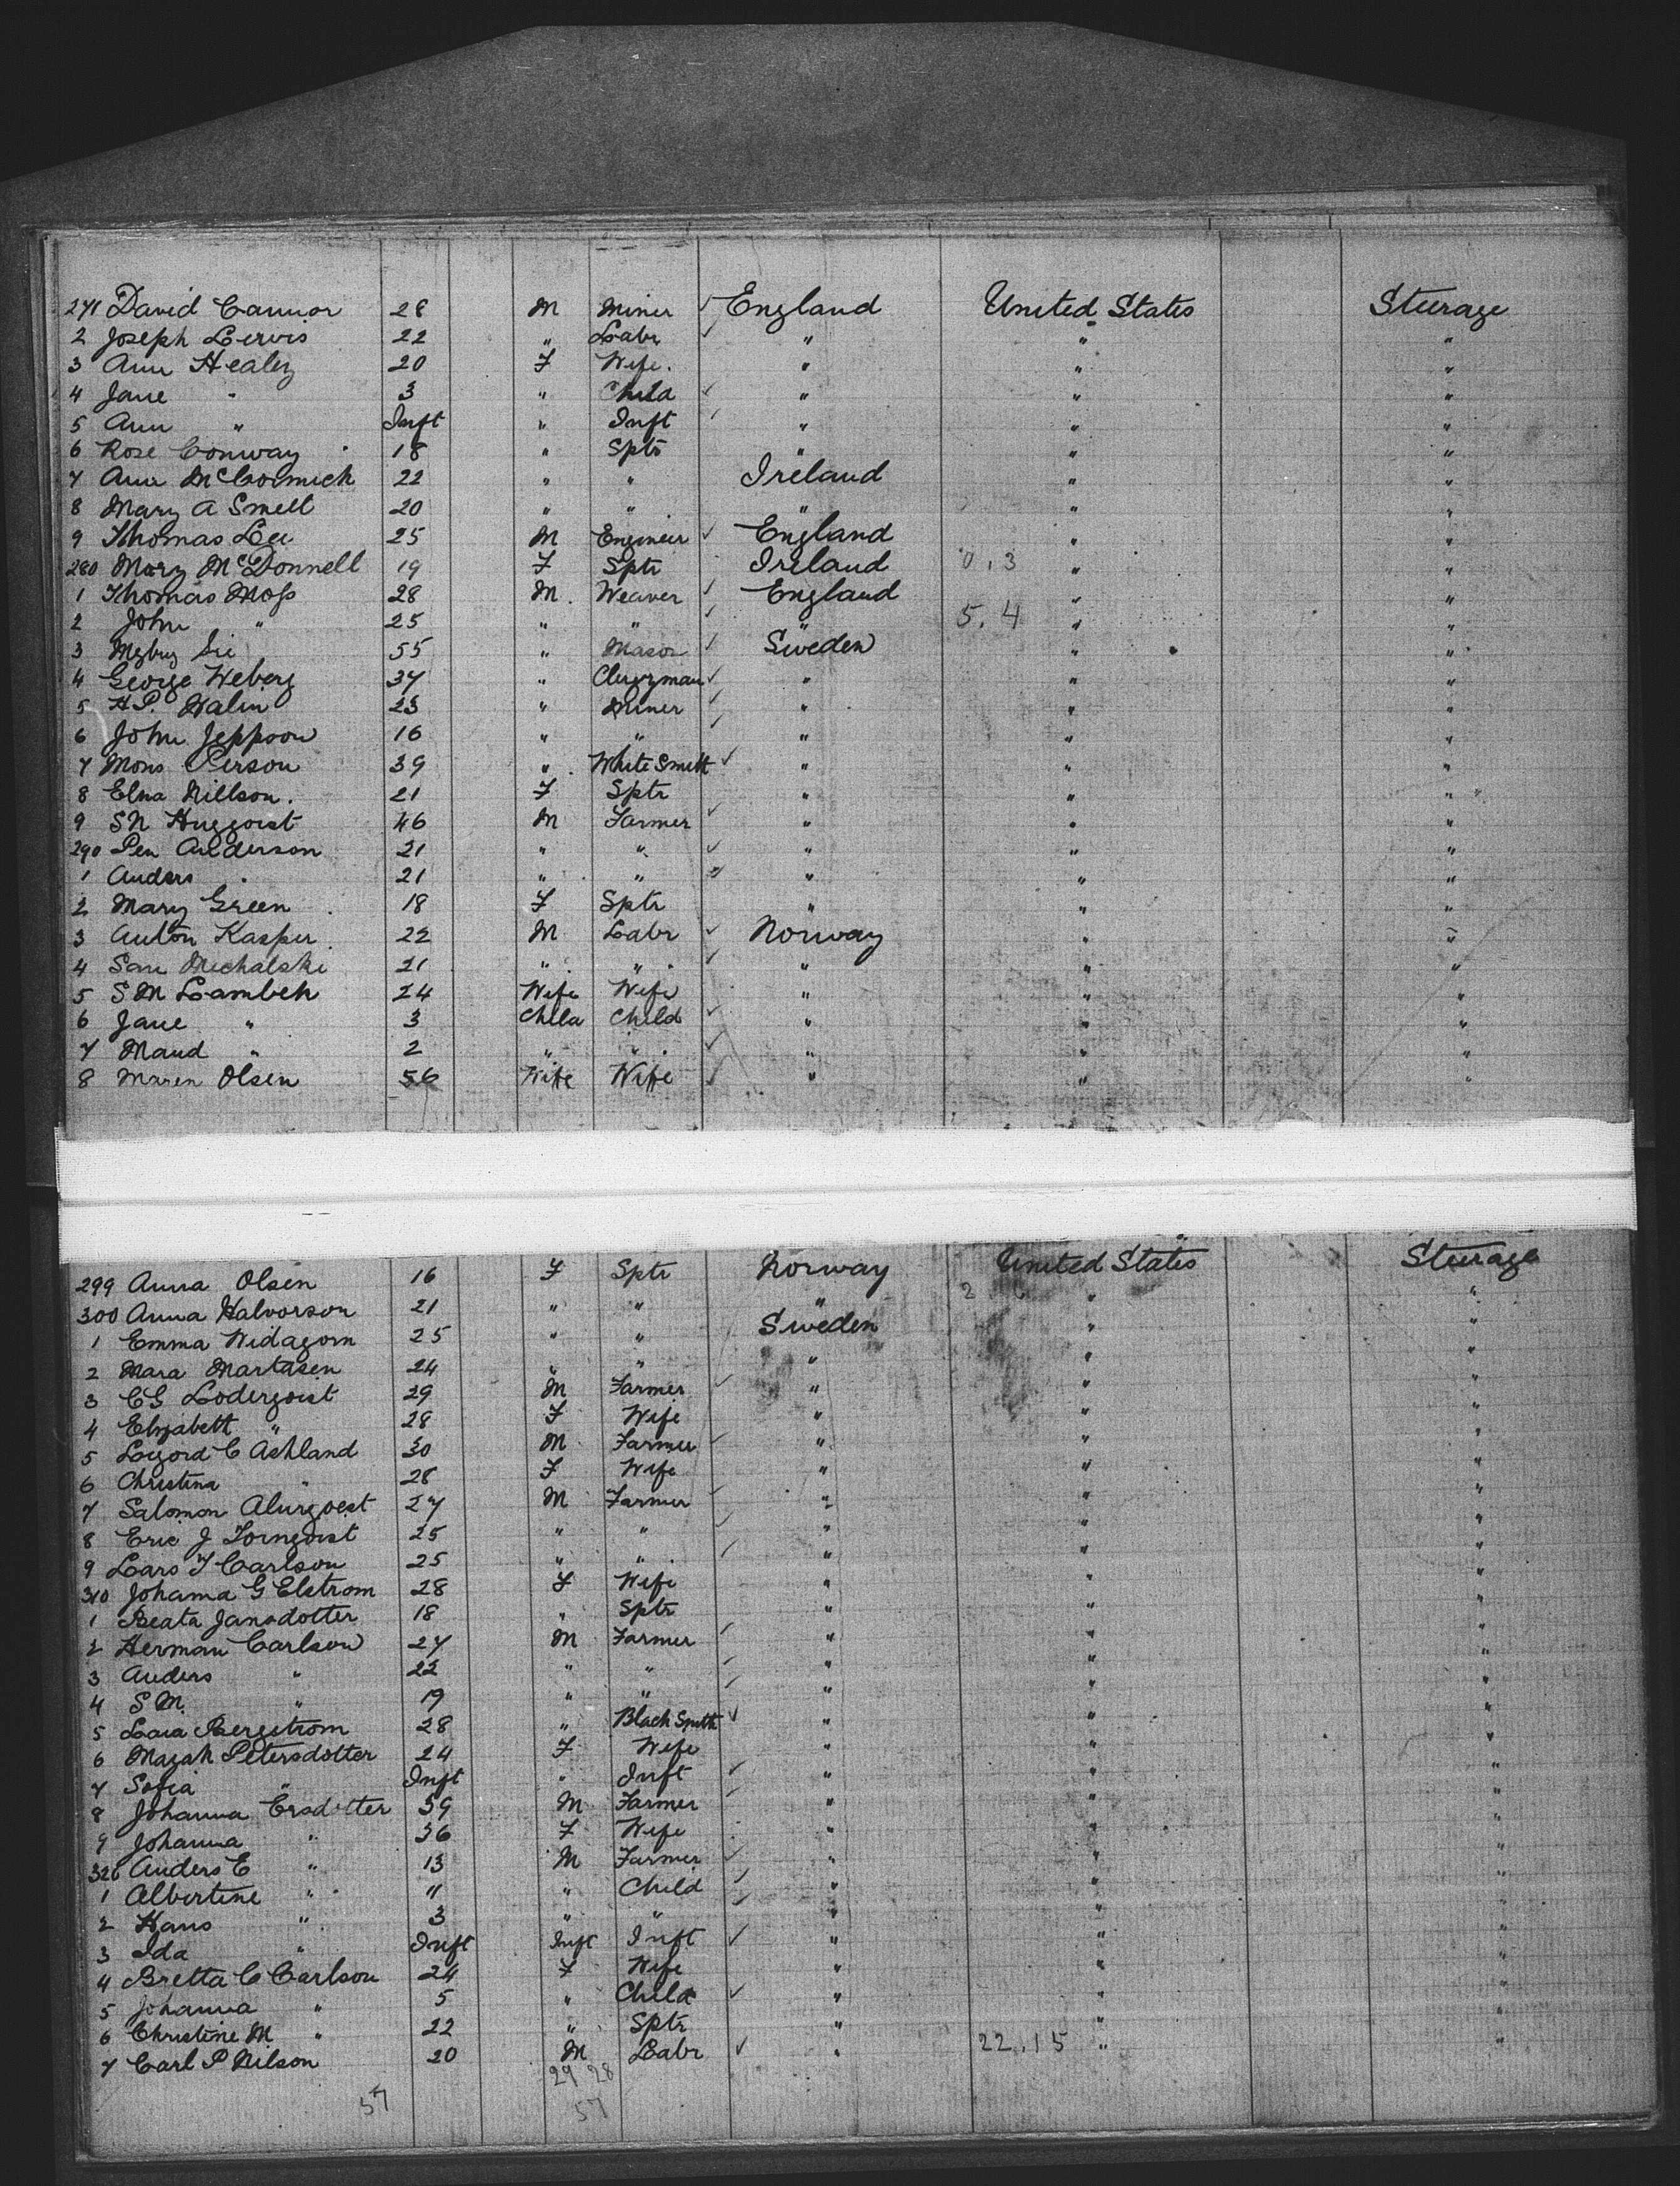 271 David Cannor 28 M Miner England United States Steerage
2 Joseph Lervis 22 " Labr " " "
3 Ann Healey 20 F Wife. " " "
4 Jane " 3 " Child " " "
5 Ann " Inft " Inft " " "
6 Rose Conway 18 " Sptr " " "
7 Ann McCormick 22 " " Ireland " "
8 Mary A Smelt 20 " " " " "
9 Thomas Lee 25 M Engineer England " "
280 Mary McDonnell 19 F Sptr Ireland 0.3 " "
1 Thomas Moss 28 M. Weaver England " "
2 John " 25 " " " 5.4 " "
3 55 " Mason Sweden " "
4 George Weberg 37 " Clergzman " " "
5 H.P. Walin 23 " Miner " " "
6 John Jeppson 16 " " " " "
7 Mons Person 39 " White Smith " " "
8 Elna Nillson. 21 F Sptr " " "
9 SN Huggoist 46 M Farmer " " "
290 Pen Anderson 21 " " " " "
1 Anders " 21 " " " " "
2 Mary Green 18 F Sptr " " "
3 Anton Kasper 22 M Labr Norway " "
4 Michalski 21 " " " " "
5 SM Lambeh 24 Wife Wife " " "
6 Jane " 3 Child Child " " "
7 Maud " 2 " " " " "
8 Maren Olsen 56 Wife Wife " " "
299 Anna Olsen 16 F Sptr Norway United States Steerage
300 Anna Halvorson 21 " " " " "
1 Emma Widagorn 25 " " Sweden " "
2 Mara Martasen 24 " " " " "
3 CG Loderqoist 29 M Farmer " " "
4 Elizabett " 28 F Wife " " "
5 C Ashland 30 M Farmer " " "
6 Christina " 28 F Wife " " "
7 Salomon Alurgoest 27 M Farmer " " "
8 Eric J Tornqoist 25 " " " " "
9 Lars T Carlson 25 " " " " "
310 Johanna G Elstrom 28 F Wife " " "
1 Beata Jansdotter 18 " Sptr " " "
2 Herman Carlson 27 M Farmer " " "
3 Anders " 22 " " " " "
4 S M. " 19 " " " " "
5 Laia Bergstrom 28 " Black Smith " " "
6 Mazah Petersdotter 24 F Wife " " "
7 Sofia " Inft " Inft " " "
8 Johanna Ersdotter 39 M Farmer " " "
9 Johanna " 36 F Wife " " "
320 Anders E " 13 M Farmer " " "
1 Albertine " 11 " Child " " "
2 Hans " 3 " " " " "
3 Ida " Inft Inft Inft " " "
4 Bretta C Carlson 24 F Wife " " "
5 Johanna " 5 " Child " " "
6 Christine M " 22 " Sptr " " "
7 Carl P Nilson 20 M Labr " 22.15 " "
29 28
57 57